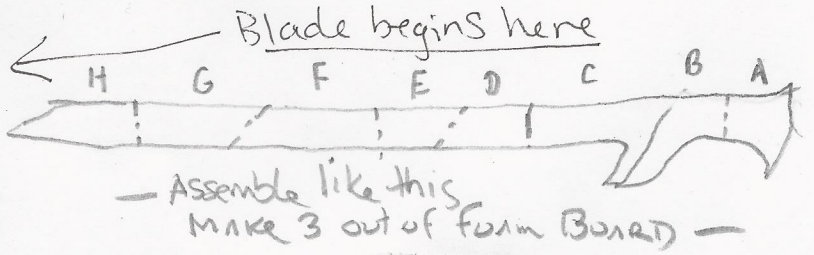 Blade begins here
H G F E D C B A
— Assemble like this
Make 3 out of Foam Board —